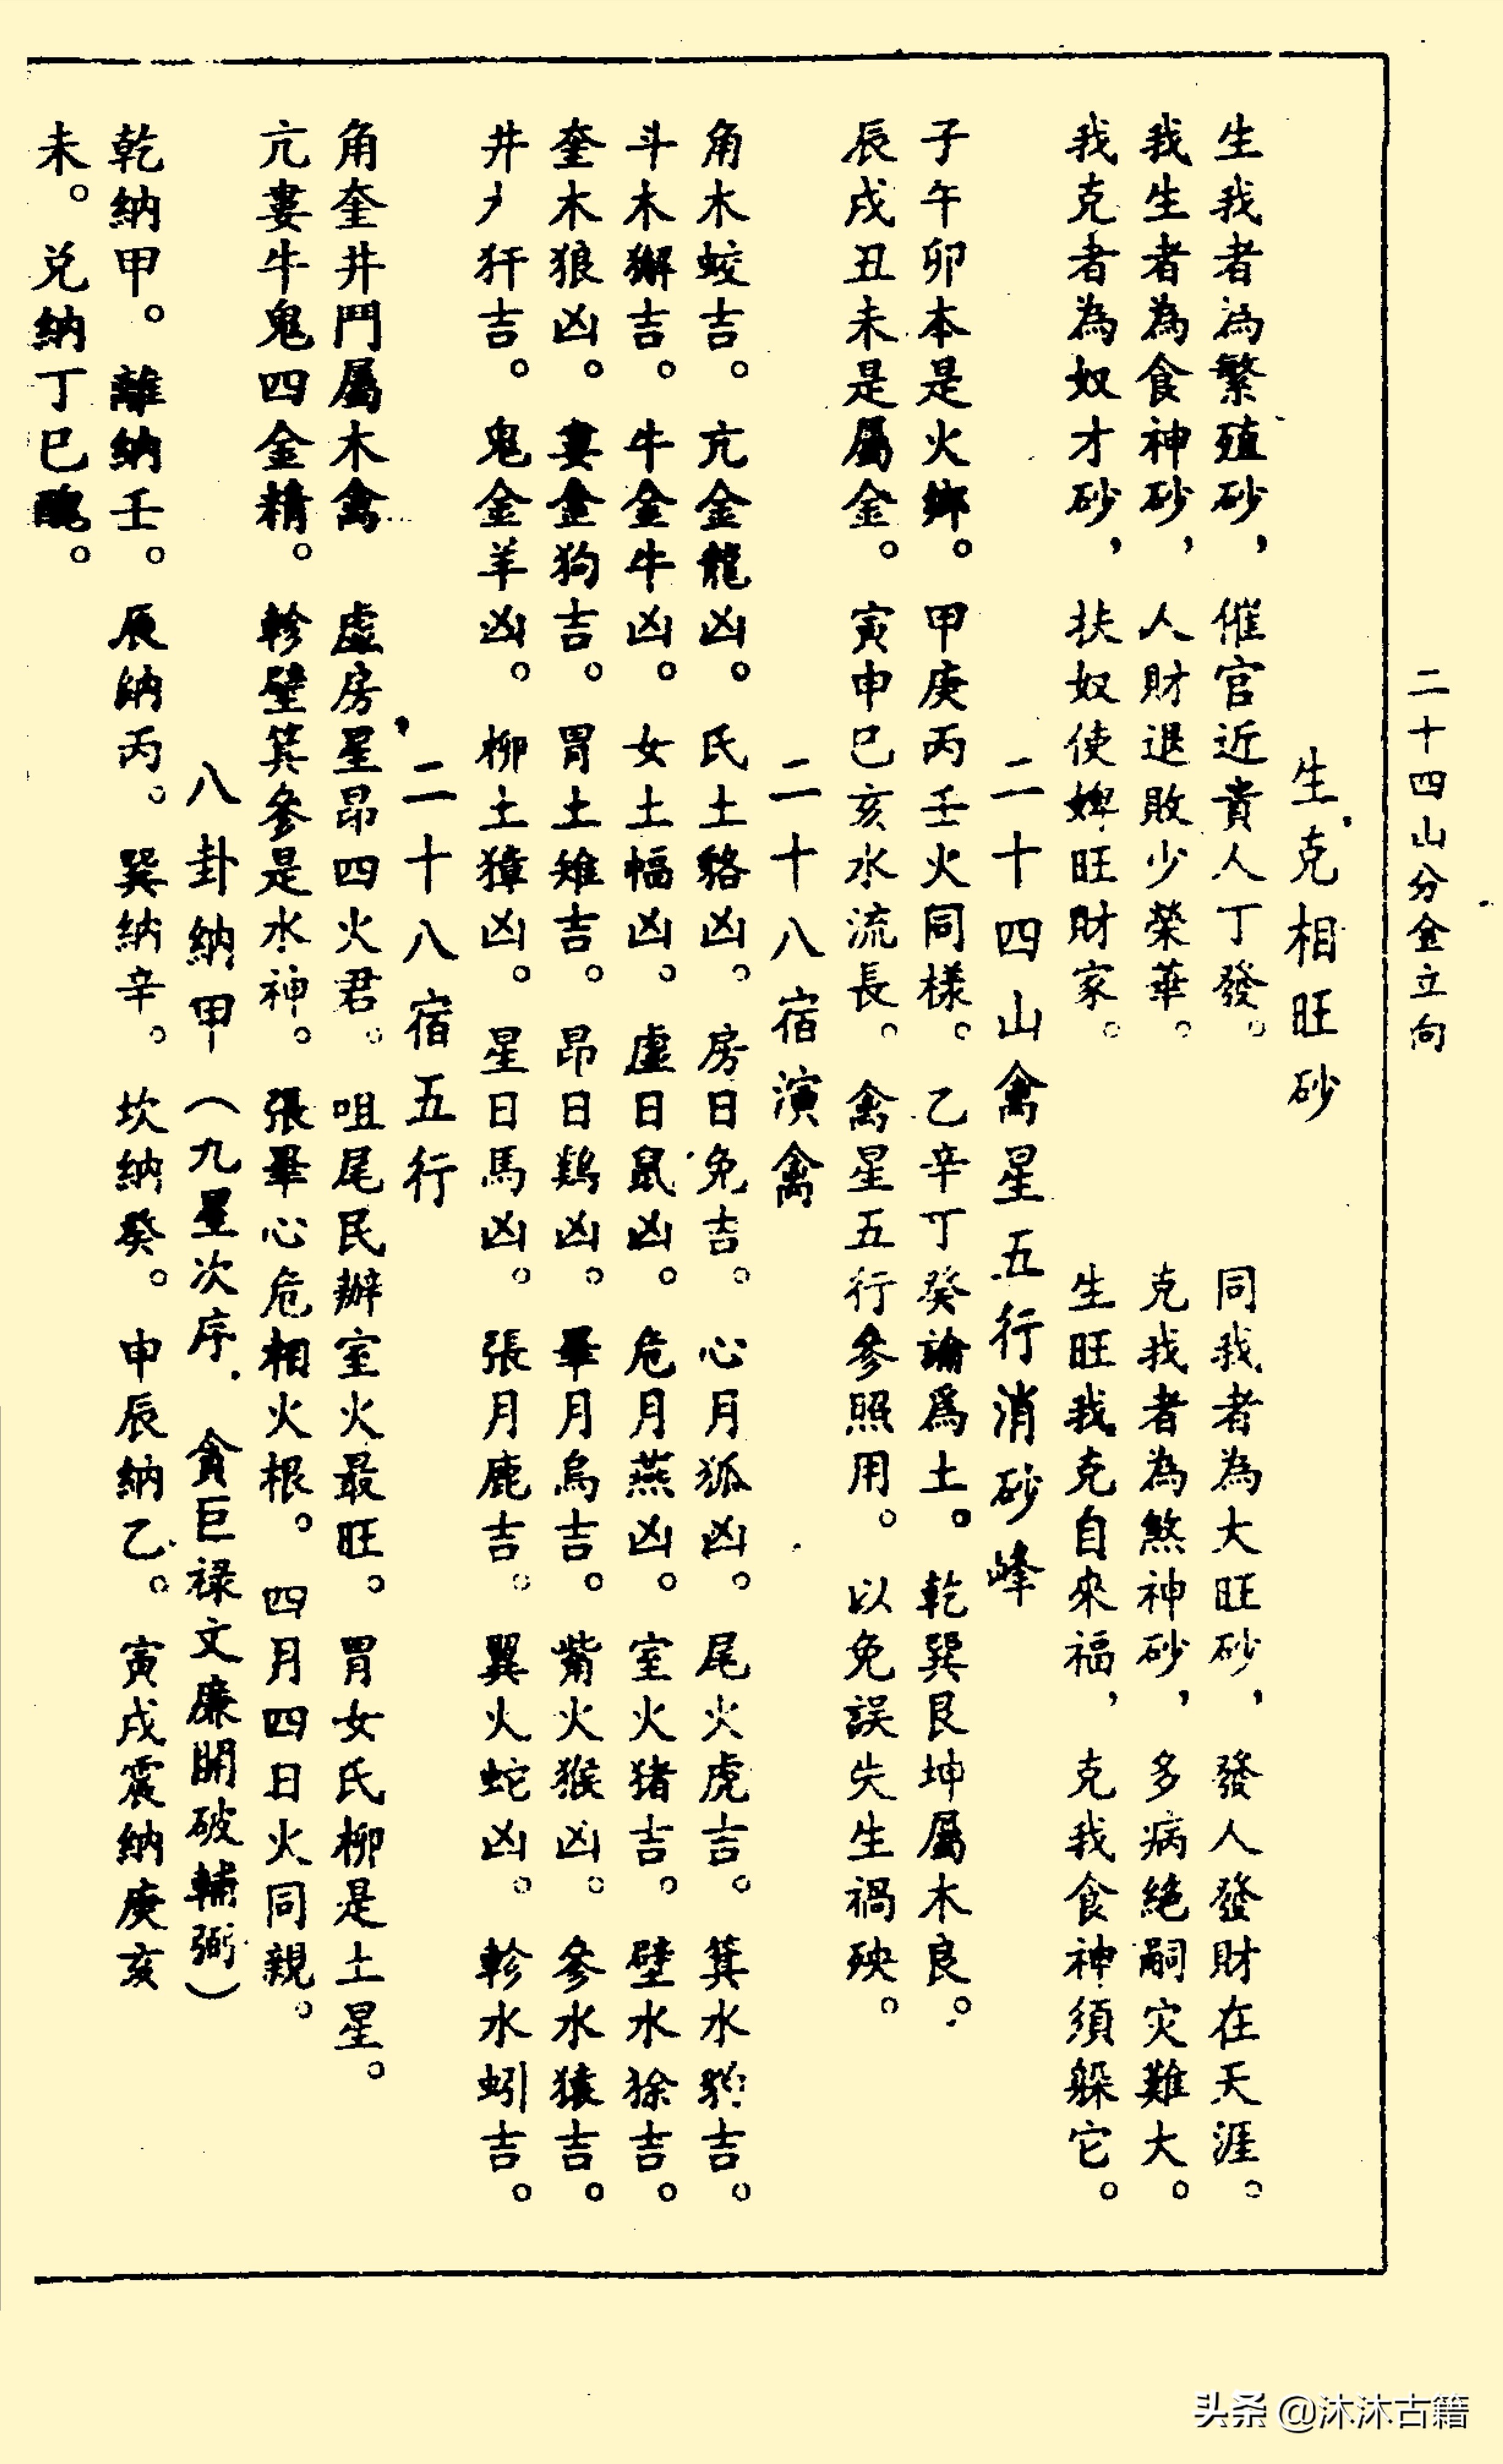 二十四山分金立向
生克相旺砂
生我者為繁殖砂，催官近貴人丁發。同我者為大旺砂，發人發財在天涯。
我生者為食神砂，人財退敗少榮華。克我者為煞神砂，多病絕嗣灾難大。
我克者為奴才砂，扶奴使婢旺財家。生旺我克自來福，克我食神須躲它。
二十四山禽星五行消砂峰
子午卯本是火鄉。甲庚丙壬火同樣。乙辛丁癸論為土。乾巽艮坤屬木良。
辰戌丑未是屬金。寅申巳亥水流長。禽星五行參照用。以免誤失生禍殃。
二十八宿演禽
角木蛟吉。亢金龍凶。氐土貉凶。房日兔吉。心月狐凶。尾火虎吉。箕水豹吉。
斗木獬吉。牛金牛凶。女土幅凶。虛日鼠凶。危月燕凶。室火猪吉。壁水㺄吉。
奎木狼凶。婁金狗吉。胃土雉吉。昴日鷄凶。畢月烏吉。觜火猴凶。參水猿吉。
井犴吉。鬼金羊凶。柳土獐凶。星日馬凶。張月鹿吉。翼火蛇凶。軫水蚓吉。
二十八宿五行
角奎井鬥屬木禽 虛房星昴四火君。咀尾民辦室火最旺。胃女氏柳是土星。
亢婁牛鬼四金精。軫壁箕參是水神。張畢心危相火根。四月四日火同親。
八卦納甲（九星次序．貪巨禄文廉開破輔弼）
乾納甲。離納壬。辰納丙。巽納辛。坎納癸。申辰納乙。寅戌震納庚亥
未。兌納丁巳醜。
头条 @沐沐古籍